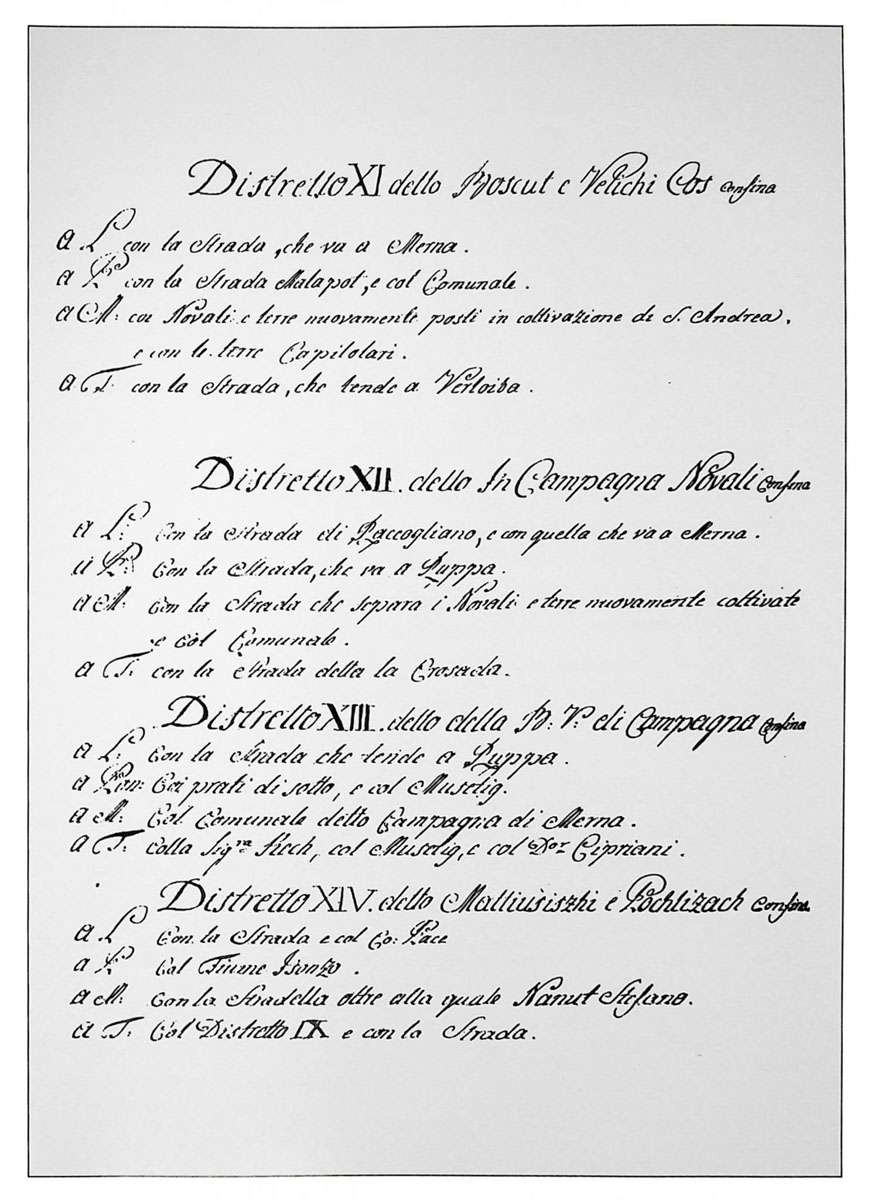 Distretto XI detto Boscut e Velichi Cos confina
a L. con la Strada, che va a Merna.
a P. con la Strada Malapot, e col Comunale.
a M: coi Novali e terre nuovamente posti in coltivazione di S. Andrea,
e con le terre Capitolari.
a T. con la Strada, che tende a Vertoiba.
Distretto XII. detto In Campagna Novali confina
a L: Con la Strada di Raccogliano, e con quella che va a Merna.
a P: Con la Strada, che va a Ruppa.
a M: Con la Strada che separa i Novali e terre nuovamente coltivate
e col Comunale.
a T. con la Strada detta la Crosada.
Distretto XIII. detto della B: V: di Campagna confina
a L: Con la Strada che tende a Ruppa.
a Pon: Coi prati di sotto, e col Muselig.
a M: Col Comunale detto Campagna di Merna.
a T: Colla Sigra Kech, col Muselig, e col Dor Cipriani.
Distretto XIV. detto Mattiusiszhi e Pochlizach confina
a L Con la Strada e col Co: Pace
a P Col Fiume Isonzo.
a M: Con la Stradella oltre alla quale Nanut Stefano.
a T. Col Distretto IX e con la Strada.